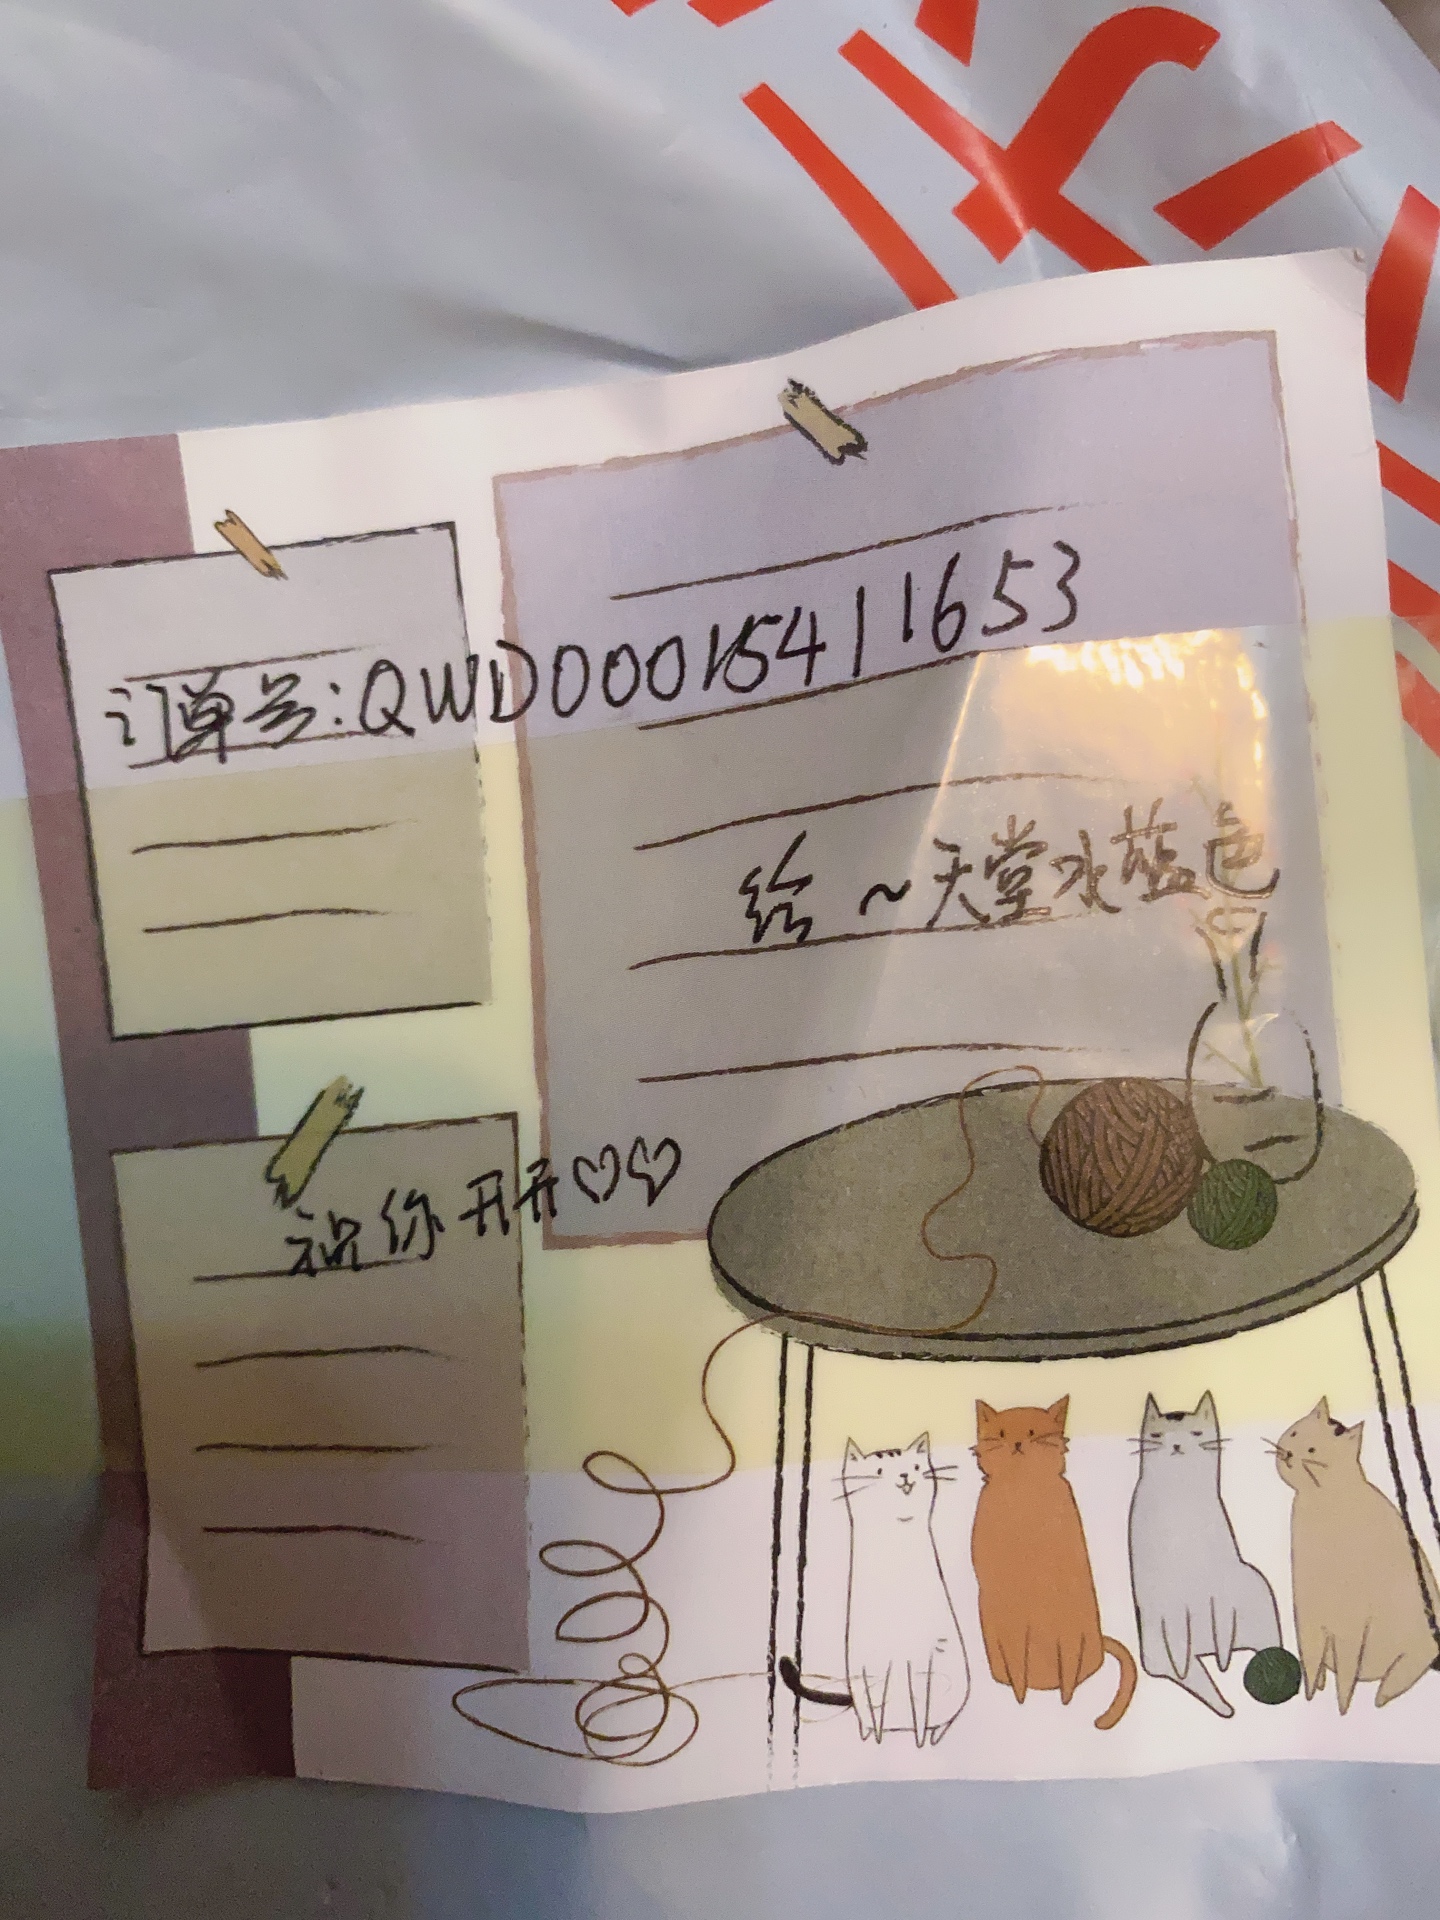 订单号:QWD00015411653
给~天堂水蓝色
祝你开开♡♡